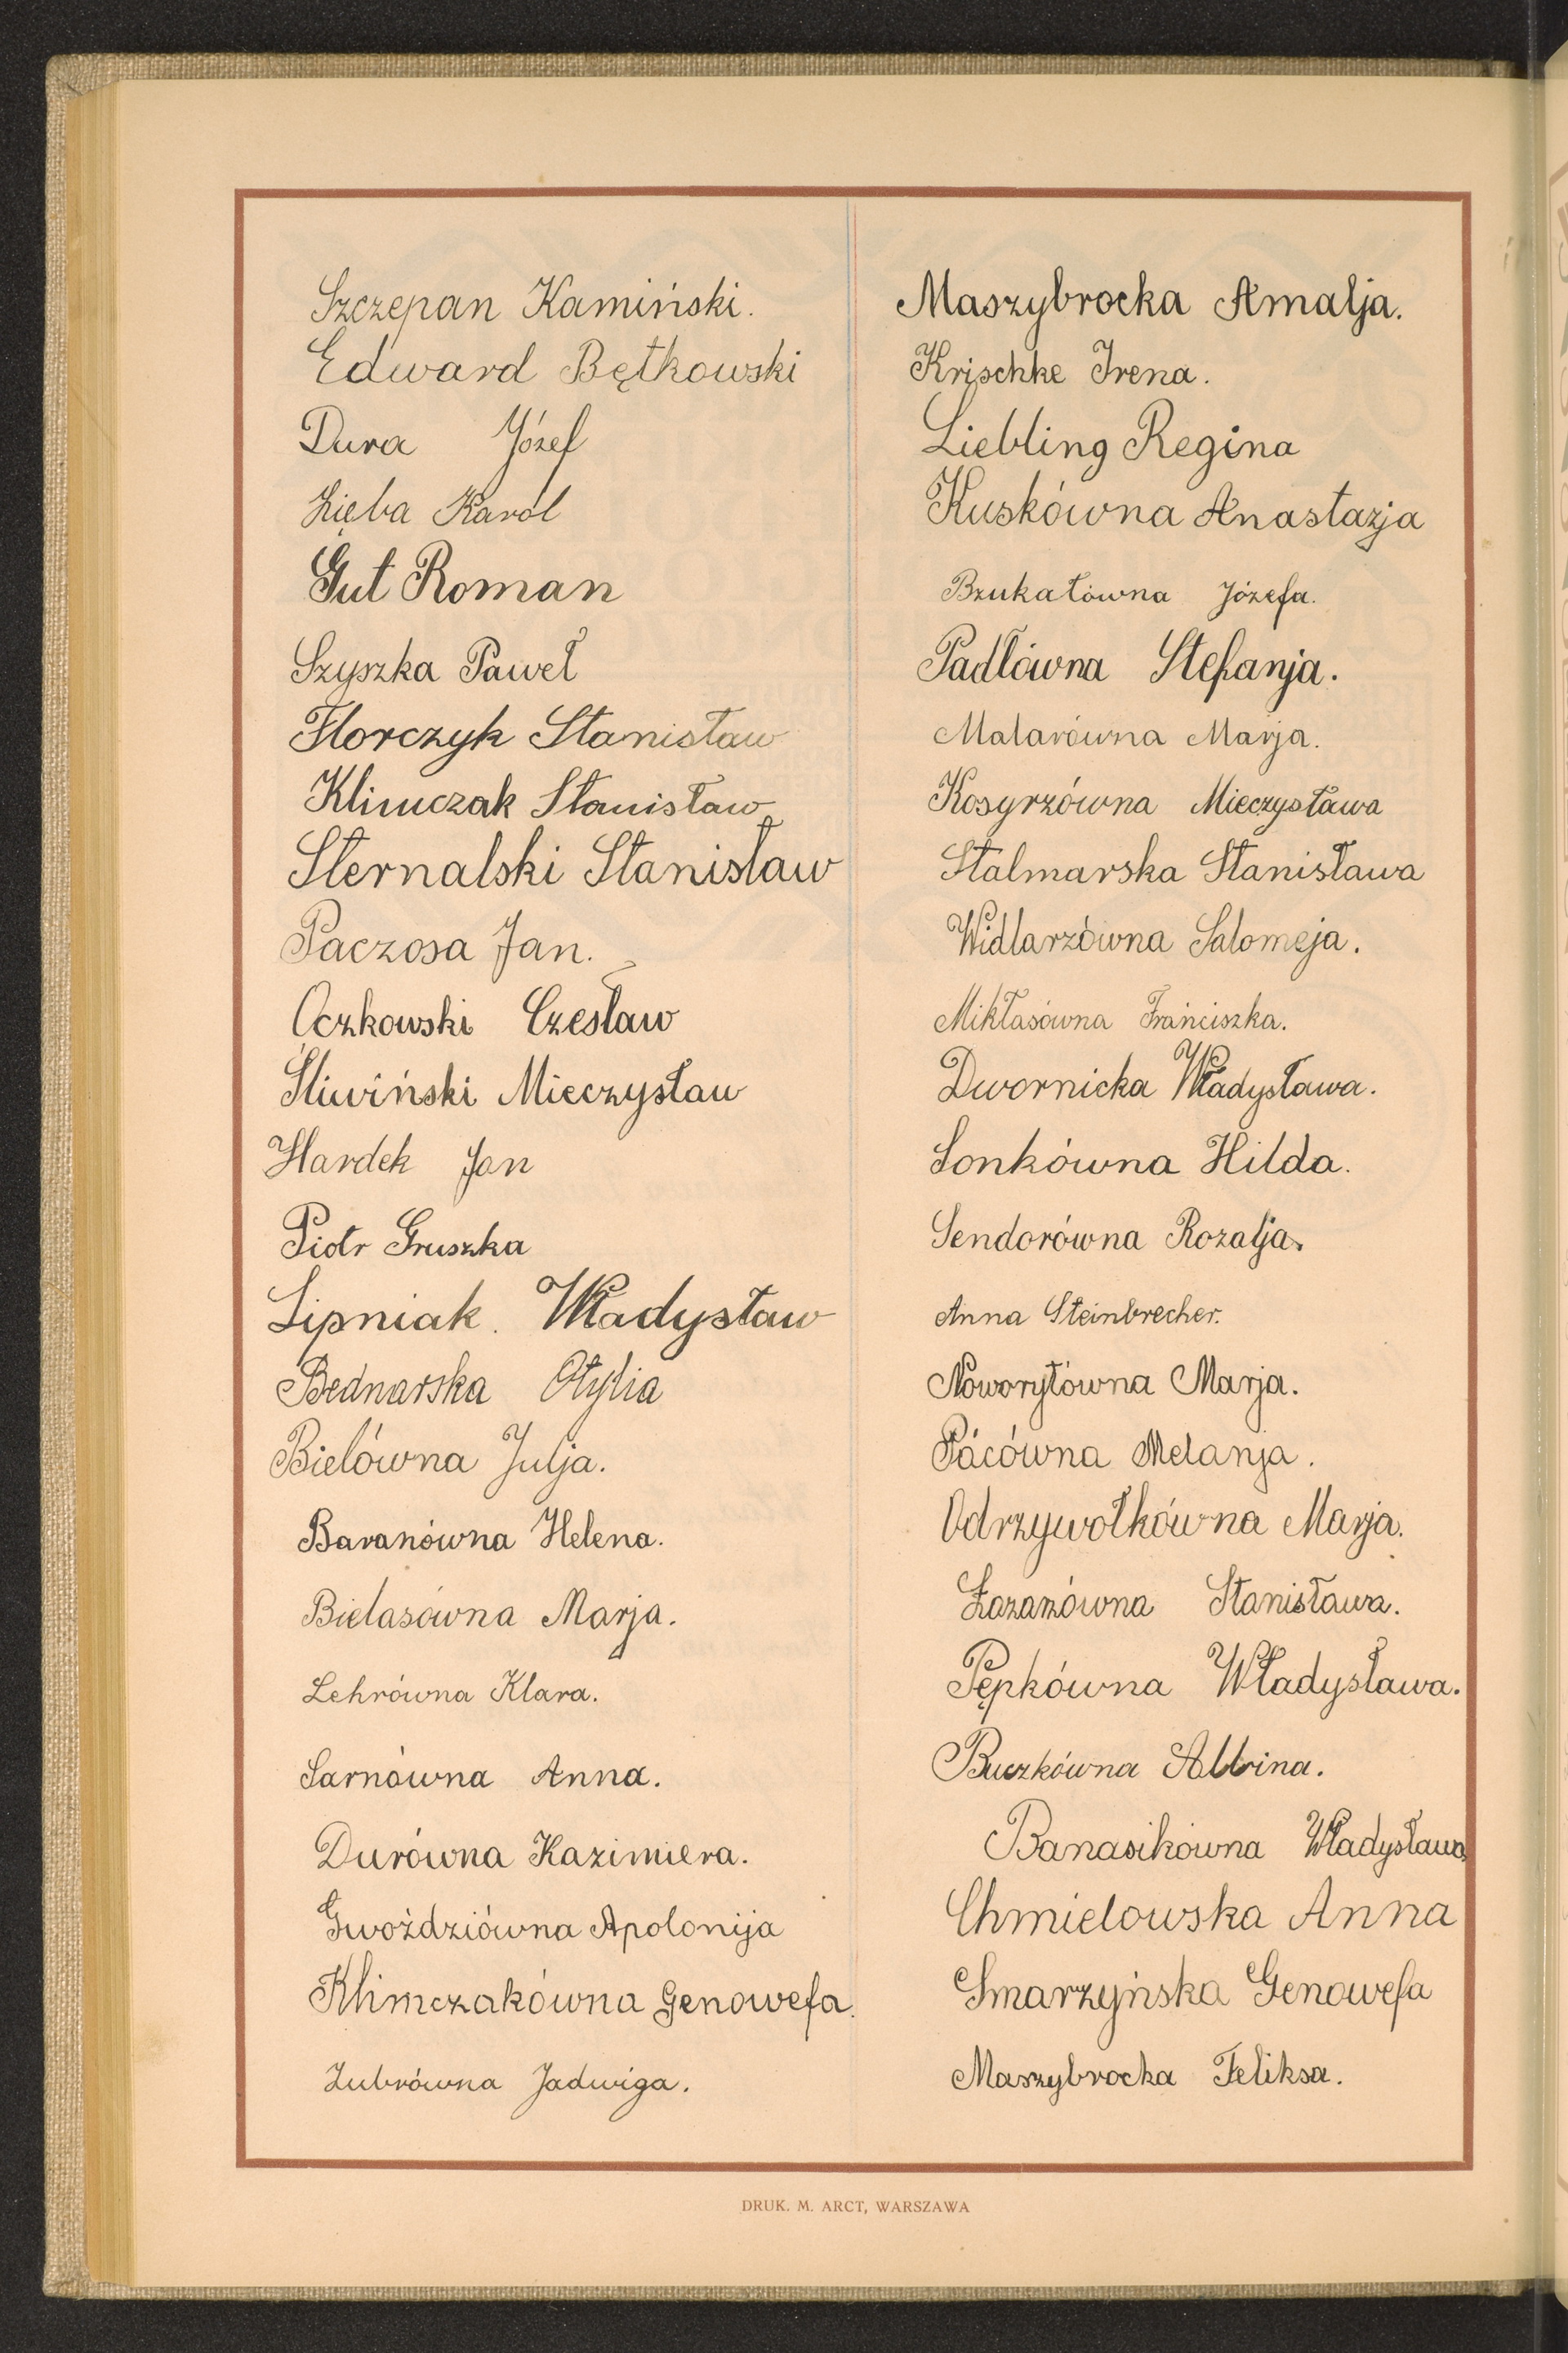 Szczepan Kamiński.
Edward Bętkowski
Dura Józef
Zięba Karol
Gut Roman
Szyszka Paweł
Florczyk Stanisław
Klimczak Stanisław
Sternalski Stanisław
Paczosa Jan.
Oczkowski Czesław
Śliwiński Mieczysław
Hardek Jan
Piotr Gruszka
Lipniak. Władysław
Bednarska Otylia
Bielówna Julja.
Baranówna Helena.
Bielasówna Marja.
Lehrówna Klara.
Sarnówna Anna.
Durówna Kazimiera.
Gwoździówna Apolonija
Klimczakówna Genowefa.
Zubrówna Jadwiga.
Maszybrocka Amalja.
Krischke Irena.
Liebling Regina
Kuskówna Anastazja
Brukałówna Józefa.
Padłówna Stefanja.
Malarówna Marja.
Kosyrzówna Mieczysława
Stalmarska Stanisława
Widlarzówna Salomeja.
Mikłasówna Franciszka.
Dwornicka Władysława.
Sonkówna Hilda.
Sendorówna Rozalja.
Anna Steinbrecher.
Noworytówna Marja.
Pacówna Melanja.
Odrzywołkówna Marja.
Stanisława.
Pępkówna Władysława.
Buczkówna Albina.
Banasikówna Władysława
Chmielowska Anna
Smarzyńska Genowefa
Maszybrocka Feliksa.
DRUK. M. ARCT, WARSZAWA